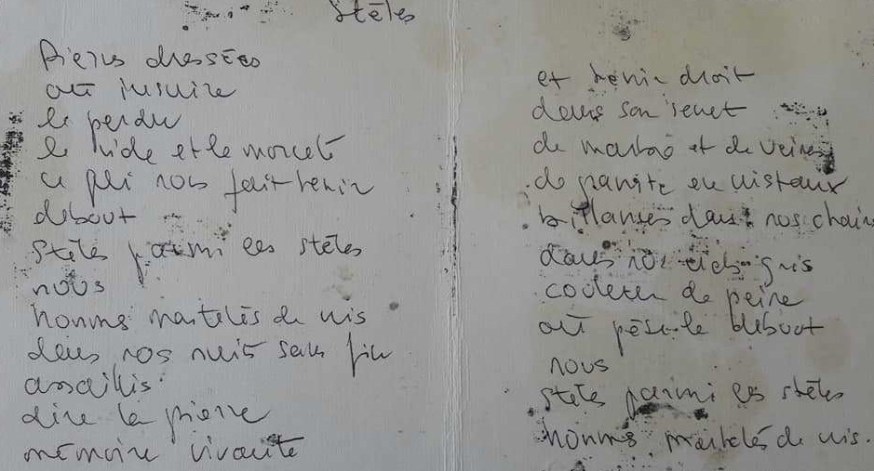 Stèles
Pierres dressées
où inscrire
le perdu
le vide et le morcelé
ce qui nous fait tenir
debout
stèles parmi les stèles
nous
hommes martelés de cris
dans nos nuits sans fin
assaillis
dire la pierre
mémoire vivante
et tenir droit
dans son secret
de marbre et de veines
de granite en cristaux
brillantes dans nos chairs
dans nos ciels gris
couleur de peine
où pèse le debout
nous
stèles parmi les stèles
hommes martelés de cris.